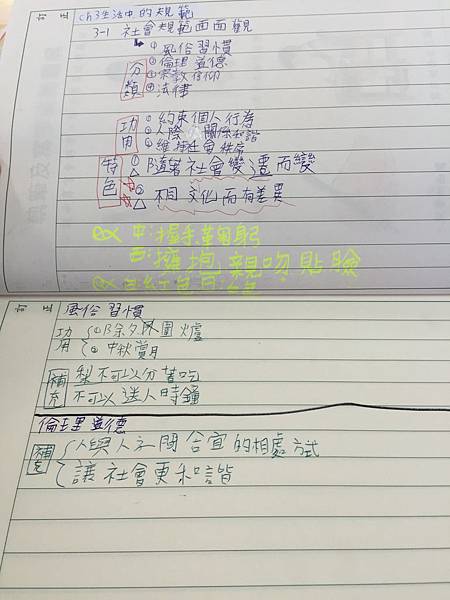 訂 正
ch3生活中的規範
3-1 社會規範面面觀
分類
① 風俗習慣
② 倫理道德
③ 宗教信仰
④ 法律
功用
① 約束個人行為
② 人際關係和諧
③ 維持社會秩序
特色
① 隨著社會變遷而變
② 不同文化而有差異
ex 中:握手鞠躬
西:擁抱親吻貼臉
訂 正
風俗習慣
功用
① 除夕圍爐
② 中秋賞月
補充
梨不可以分著吃
不可以送人時鐘
倫理道德
補充
人與人之間合宜的相處方式
讓社會更和諧